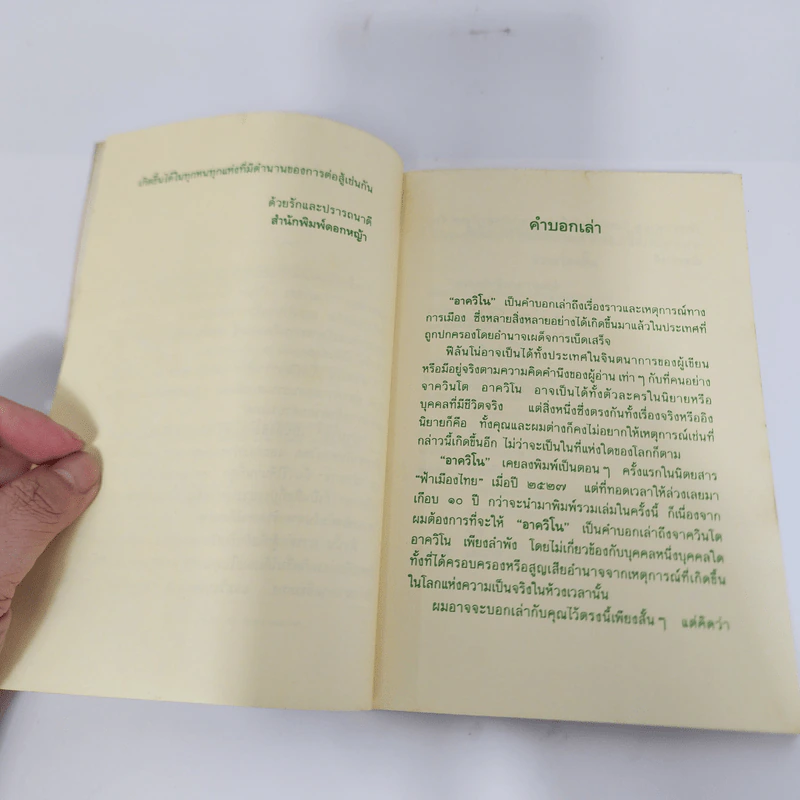 เกิดขึ้นได้ในทุกหนทุกแห่งที่มีตำนานของการต่อสู้เช่นกัน
ด้วยรักและปรารถนาดี
สำนักพิมพ์ดอกหญ้า
คำบอกเล่า
"อาควิโน" เป็นคำบอกเล่าถึงเรื่องราวและเหตุการณ์ทาง
การเมือง ซึ่งหลายสิ่งหลายอย่างได้เกิดขึ้นมาแล้วในประเทศที่
ถูกปกครองโดยอำนาจเผด็จการเบ็ดเสร็จ
ฟิลันโน่อาจเป็นได้ทั้งประเทศในจินตนาการของผู้เขียน
หรือมีอยู่จริงตามความคิดคำนึงของผู้อ่าน เท่า ๆ กับที่คนอย่าง
จาควินโต อาควิโน อาจเป็นได้ทั้งตัวละครในนิยายหรือ
บุคคลที่มีชีวิตจริง แต่สิ่งหนึ่งซึ่งตรงกันทั้งเรื่องจริงหรืออิง
นิยายก็คือ ทั้งคุณและผมต่างก็คงไม่อยากให้เหตุการณ์เช่นที่
กล่าวนี้เกิดขึ้นอีก ไม่ว่าจะเป็นในที่แห่งใดของโลกก็ตาม
"อาควิโน" เคยลงพิมพ์เป็นตอน ๆ ครั้งแรกในนิตยสาร
"ฟ้าเมืองไทย" เมื่อปี ๒๕๒๗ แต่ที่ทอดเวลาให้ล่วงเลยมา
เกือบ ๑๐ ปี กว่าจะนำมาพิมพ์รวมเล่มในครั้งนี้ ก็เนื่องจาก
ผมต้องการที่จะให้ "อาควิโน" เป็นคำบอกเล่าถึงจาควินโต
อาควิโน เพียงลำพัง โดยไม่เกี่ยวข้องกับบุคคลหนึ่งบุคคลใด
ทั้งที่ได้ครอบครองหรือสูญเสียอำนาจจากเหตุการณ์ที่เกิดขึ้น
ในโลกแห่งความเป็นจริงในห้วงเวลานั้น
ผมอาจจะบอกเล่ากับคุณไว้ตรงนี้เพียงสั้น ๆ แต่คิดว่า